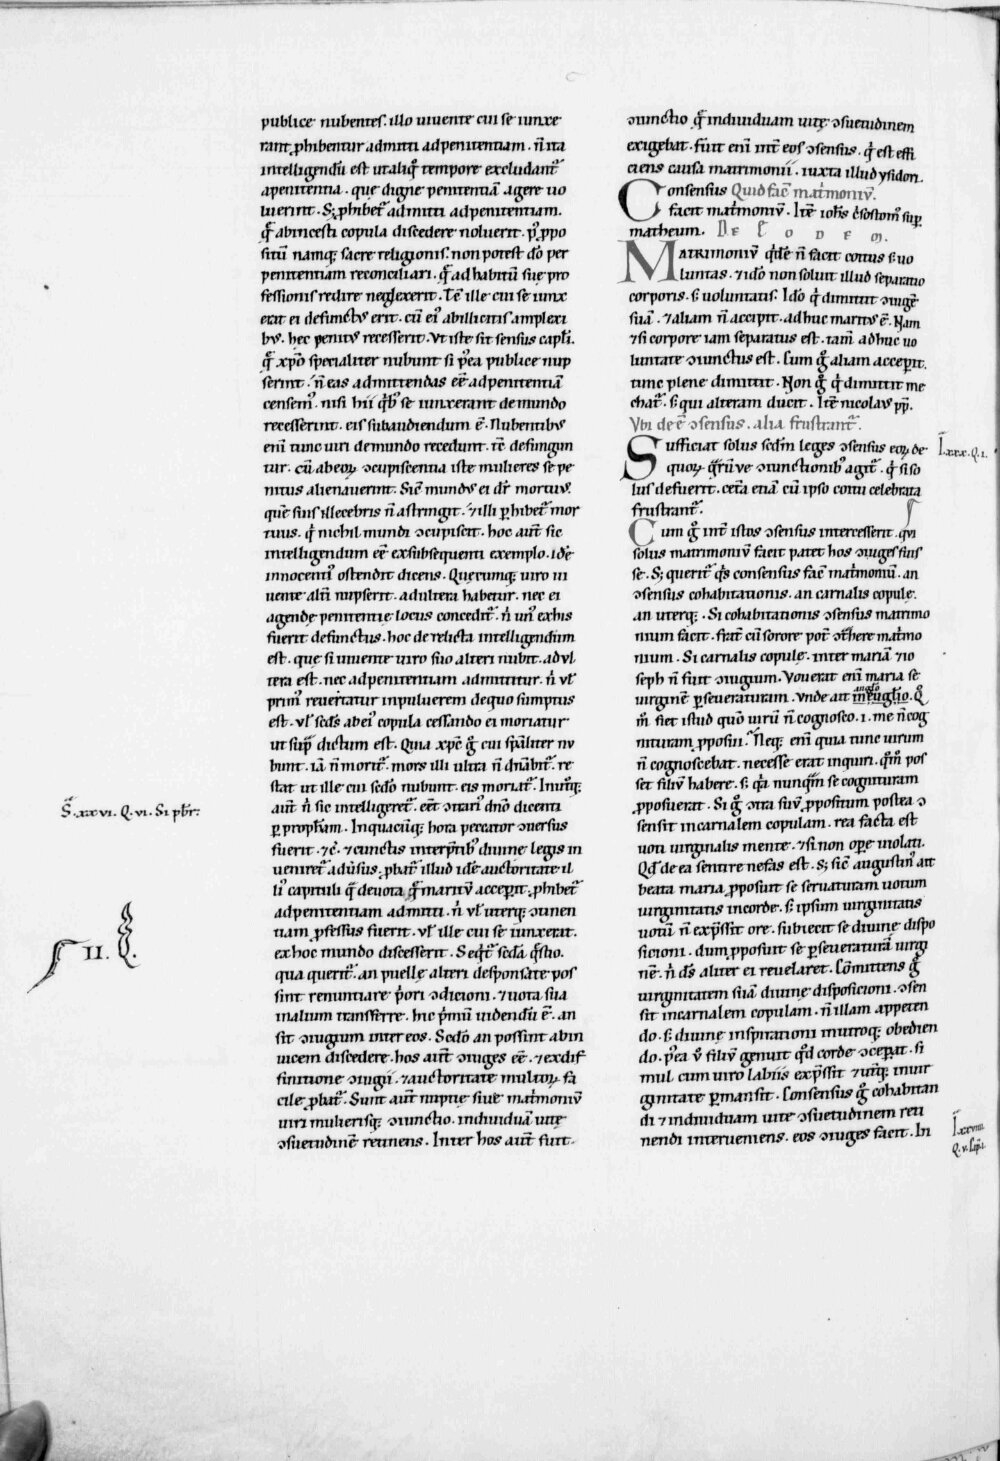 publice nubentes. illo uiuente cui se iunxe
rant ꝓhibentur admitti adpenitentiam. n̄ ita
intelligendū est ut aliqͦ tempore excludantᷣ
apenitentia. quę digne penitentiā agere uo
luerint. Sꝫ ꝓhibetᷣ admitti adpenitentiam.
qͥ abincesti copula discedere noluerit. ꝓpo
sitū namqꝫ sacre religionis. non potest deo per
penitentiam reconciliari. qͥ ad habitū suę pro
fessionis redire neglexerit. Tc̄ ille cui se iunx
erat ei defunctꝰ erit. cū eiꝰ abillicitis amplexi
bꝰ. hec penitꝰ recesserit. Vt iste sit sensus capłi.
quę xp̄o specialiter nubunt si pꝰea publice nup
serint. n̄ eas admittendas eē adpenitentiā
censemꝰ. nisi hii qͥbꝰ se iunxerant demundo
recesserint. eis subaudiendum ē. Nubentibꝰ
enī tunc uiri demundo recedunt. tc̄ defungun
tur. cū abeoꝝ ɔcupiscentia iste mulieres se pe
nitus alienauerint. Sic̄ mundꝰ ei dr̄ mortuꝰ.
quē suis illecebris n̄ astringit. ⁊ illi ꝑhibetᷣ mor
tuus. qͥ nichil mundi ɔcupiscit. hoc aut̄ sic
intelligendum eē exsubsequenti exemplo. idē
innocentiꝰ ostendit dicens. Quęcumqꝫ uiro ui
uente alt̄i nupserit. adultera habetur. nec ei
agende penitentię locus conceditᷣ. n̄ unꝰ exhis
fuerit defunctus. hoc de relicta intelligendum
est. quę si uiuente uiro suo alteri nubit. adul
tera est. nec adpenitentiam admittitur. n̄ ul̄
primꝰ reuertatur inpuluerem dequo sumptus
est. ul̄ scd̄s abeiꝰ copula cessando ei moriatur
ut supͣ dictum est. Quia xp̄c gͦ cui sp̄aliter nu
bunt. iā n̄ moritᷣ. mors illi ultra n̄ dn̄abitᷣ. re
stat ut ille cui scd̄o nubunt. eis moriatᷣ. Inutͥqꝫ
aut̄ n̄ sic intelligeretᷣ. eēt ɔtrariū dn̄o dicenti
ꝑ ꝓphetam. Inquacūqꝫ hora peccator ɔuersus
fuerit. ⁊c̄. ⁊ cunctis interp̄tibꝰ diuine legis in
ueniretᷣ aduersus. ꝓbatᷣ illud idē auctoritate il
liꝰ capituli qͣ deuota qͣ maritū acceperit. ꝓhibetᷣ
adpenitentiam admitti. n̄ ul̄ uterqꝫ ɔtinen
tiam ꝓfessus fuerit. ul̄ ille cui se iunxerat.
ex hoc mundo discesserit. Seqͥtᷣ scd̄a qͣstio.
qua queritᷣ. an puellę alteri desponsate pos
sint renuntiare pͥori ɔdicioni. ⁊ uota sua
inalium transferre. hic pͥmū uidendū ē. an
sit ɔiugium inter eos. Scd̄o an possint abin
uicem discedere. hos aut̄ ɔiuges eē. ⁊ exdif
finitione ɔiugii. ⁊ auctoritate multoꝝ fa
cile ꝓbatᷣ. Sunt aut̄ nuptię siue mat̄moniū
uiri mulierisqꝫ ɔiunctio. indiuiduā uitę
ɔsuetudinē retinens. Inter hos aut̄ fuit
ɔiunctio quę indiuiduam uitę ɔsuetudinem
exigebat. fuit enī int̄ eos ɔsensus. qͥ est effi
ciens causa matrimonii. iuxta illud ysidori.
Consensus Quid fac̄ mat̄moniū.
facit mat̄moniū. Itē ioh̄s c̄sostomꝰ sup̄
matheum. De eodem.
Matrimoniū qͥdē n̄ facit coitus sꝫ uo
luntas. ⁊ ido n̄ soluit illud separatio
corporis. sꝫ uoluntatis. Ido qͥ dimittit ɔiugē
suā. ⁊ aliam n̄ accipit. adhuc maritꝰ ē. Nam
⁊ si corpore iam separatus est. tam̄ adhuc uo
luntate ɔiunctus est. Cum gͦ aliam acceperit.
tunc plene dimittit. Non gͦ qͥ dimittit me
chatᷣ. sꝫ qui alteram ducit. Itē nicolaus pp̄.
Vbi deē ɔsensus. alia frustrantᷣ.
Sufficiat solus scd̄m leges ɔsensus eoꝝ de
quoꝝ qͣrūue ɔiunctionibꝰ agitᷣ. qͥ si so
lus defuerit. cetera etiā cū ipso coitu celebrata
frustrantᷣ.
Cum gͦ int̄ istos ɔsensus intercesserit. qui
solus matrimoniū facit patet hos ɔiuges fuis
se. Sꝫ queritᷣ qͥs consensus fac̄ mat̄moniū. an
ɔsensus cohabitationis. an carnalis copulę.
an uterqꝫ. Si cohabitationis ɔsensus matrimo
nium facit. frat̄ cū sorore pot̄ ɔtͣhere mat̄mo
nium. Si carnalis copulę. inter mariā ⁊ io
seph n̄ fuit ɔiugium. Vouerat enī maria se
uirginē ꝑseueraturam. Vnde ait angelo. Qͦ
m̄ fiet istud quō uirū n̄ cognosco. i. me n̄ cog
nituram ꝓposui. Neqꝫ enī quia tunc uirum
n̄ cognoscebat. necesse erat inquiri. qͦm̄ pos
set filiū habere. sꝫ qͥa nunqͣm se cognituram
ꝓposuerat. Si gͦ ɔtra suū ꝓpositum postea ɔ
sensit incarnalem copulam. rea facta est
uoti uirginalis mente. ⁊ si non ope uiolati.
Qd̄ de ea sentire nefas est. Sꝫ sic̄ augustinꝰ ait
beata maria ꝓposuit se seruaturam uotum
uirginitatis incorde. sꝫ ipsum uirginitatis
uotū n̄ exp̄ssit ore. subiecit se diuinę dispo
sicioni. dum ꝓposuit se ꝑseueraturā uirgi
nē. n̄ d̄s aliter ei reuelaret. Cōmittens gͦ
uirginitatem suā diuinę disposicioni. ɔsen
sit incarnalem copulam. n̄ illam appeten
do. sꝫ diuinę inspirationi inutroqꝫ obedien
do. pꝰea ū filiū genuit qd̄ corde ɔceperat. si
mul cum uiro labiis exp̄ssit ⁊ utͥqꝫ inuir
ginitate ꝑmansit. Consensus gͦ cohabitan
di ⁊ indiuiduam uitę ɔsuetudinem reti
nendi interueniens. eos ɔiuges facit. In
S̄. xxvi. Q. vi. Si pb̄r.
II. Q.
I. xxx. Q. 1.